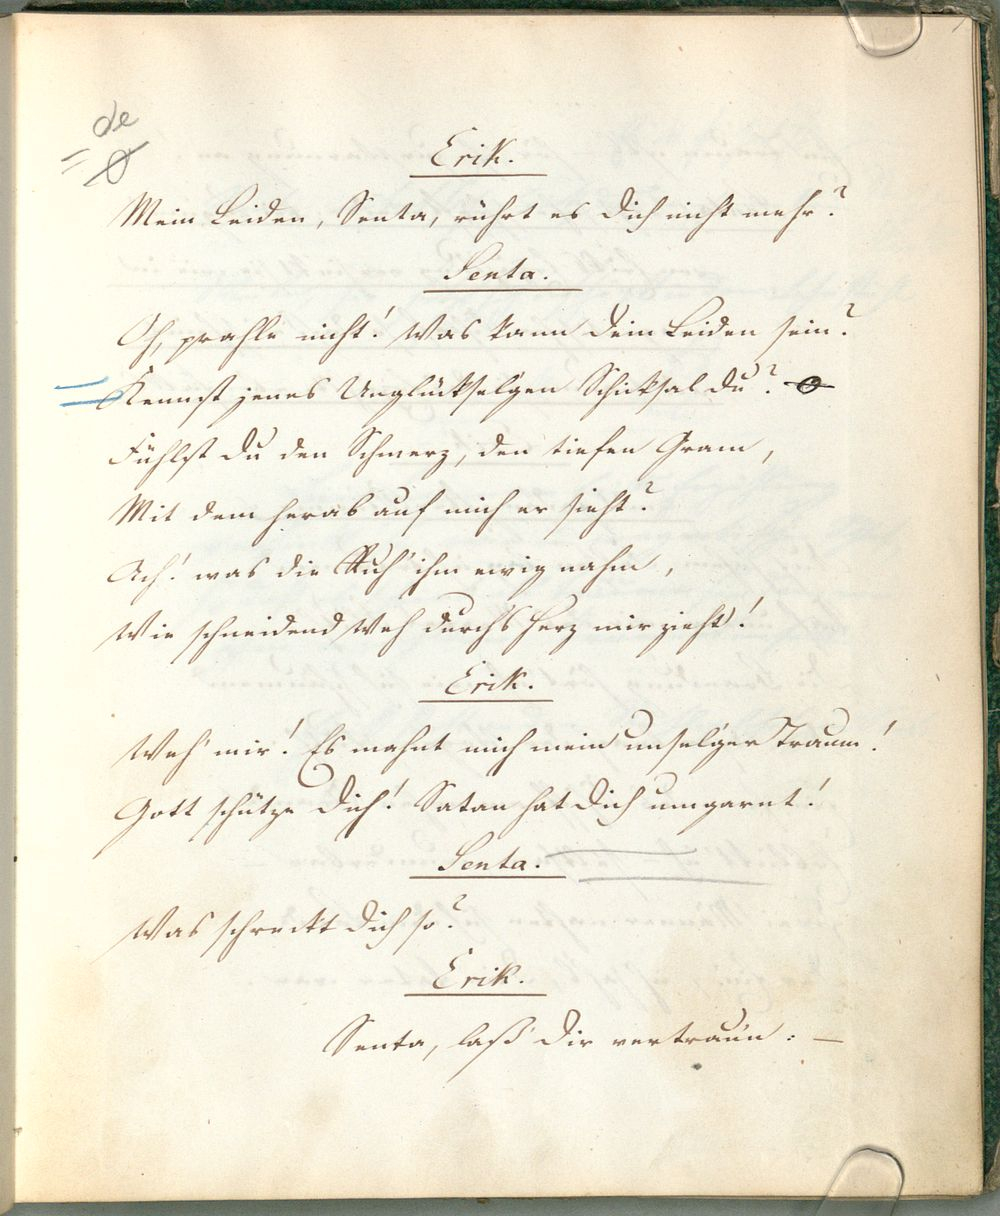 de
Erik.
Mein Leiden, Senta, rührt es Dich nicht mehr?
Senta.
Oh, prahle nicht! Was kann Dein Leiden sein?
Kennst jenes Unglücksel'gen Schicksal Du?
Fühlst Du den Schmerz, den tiefen Gram,
Mit dem herab auf mich er sieht?
Ach! was die Ruh' ihm ewig nahm,
Wie schneidend Weh durch's Herz mir zieht!
Erik.
Weh' mir! Es mahnt mich mein unsel'ger Traum!
Gott schütze Dich! Satan hat Dich umgarnt!
Senta.
Was schreckt Dich so?
Erik.
Senta, laß' Dir vertrau'n: —